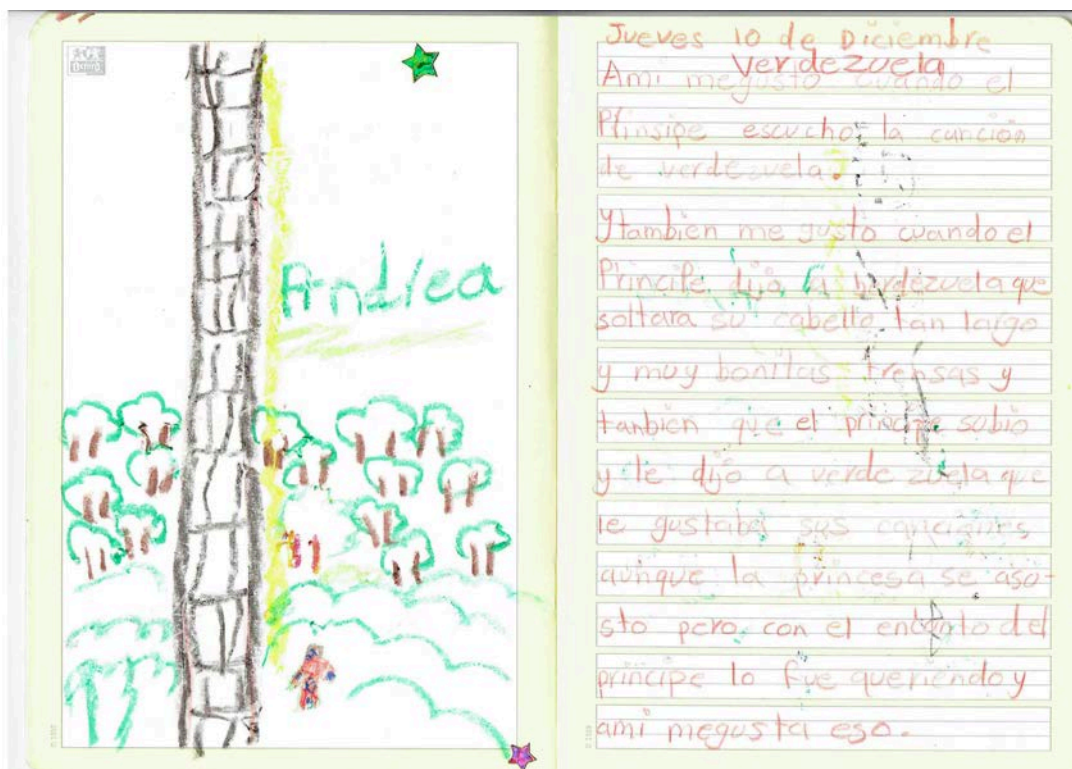 Andrea
Jueves 10 de Diciembre
Verdezuela
Ami megusto cuando el
Plinsipe escucho la canción
de verdezuela.
y tambien me gusto cuando el
Principe dijo a berdezuela que
soltara su cabello tan largo
y muy bonitas trensas y
tanbien que el principe subio
y le dijo a verdezuela que
le gustaba sus canciones
aunque la princesa se aso-
sto pero con el encanto del
principe lo fue queriendo y
ami megusta eso.